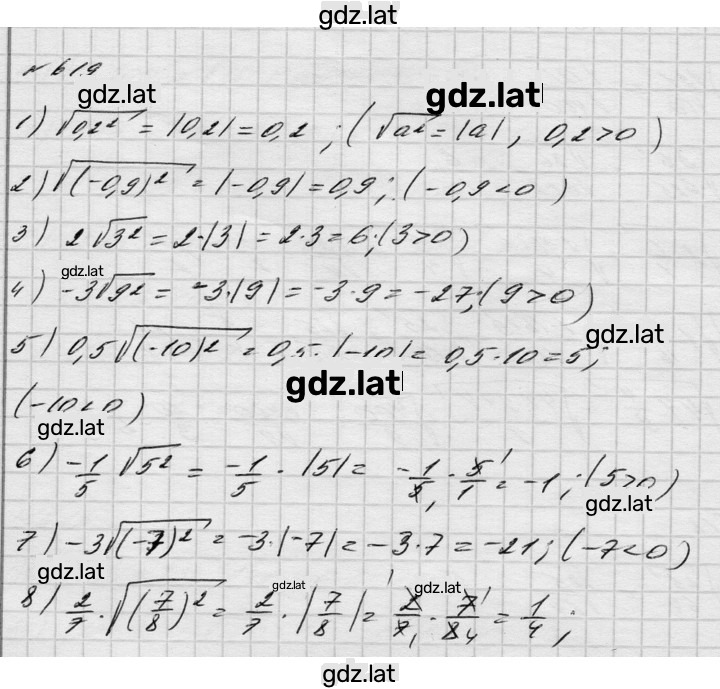 gdz.lat
№ 619
gdz.lat
gdz.lat
1) √0,2² = |0,2| = 0,2 ; (√a² = |a| , 0,2>0 )
2) √(-0,9)² = |-0,9| = 0,9 ; (-0,9<0 )
3) 2√3² = 2·|3| = 2·3 = 6; (3>0)
gdz.lat
4) -3√9² = -3·|9| = -3·9 = -27; (9>0)
gdz.lat
5) 0,5√(-10)² = 0,5·|-10| = 0,5·10 = 5;
gdz.lat
(-10<0)
gdz.lat
6) -1/5 √5² = -1/5 · |5| = -1/5 · 5/1 = -1 ; (5>0)
gdz.lat
7) -3√(-7)² = -3·|-7| = -3·7 = -21; (-7<0)
gdz.lat
gdz.lat
gdz.lat
8) 2/7 · √(7/8)² = 2/7 · |7/8| = 2/7 · 7/8 = 1/4 ;
gdz.lat